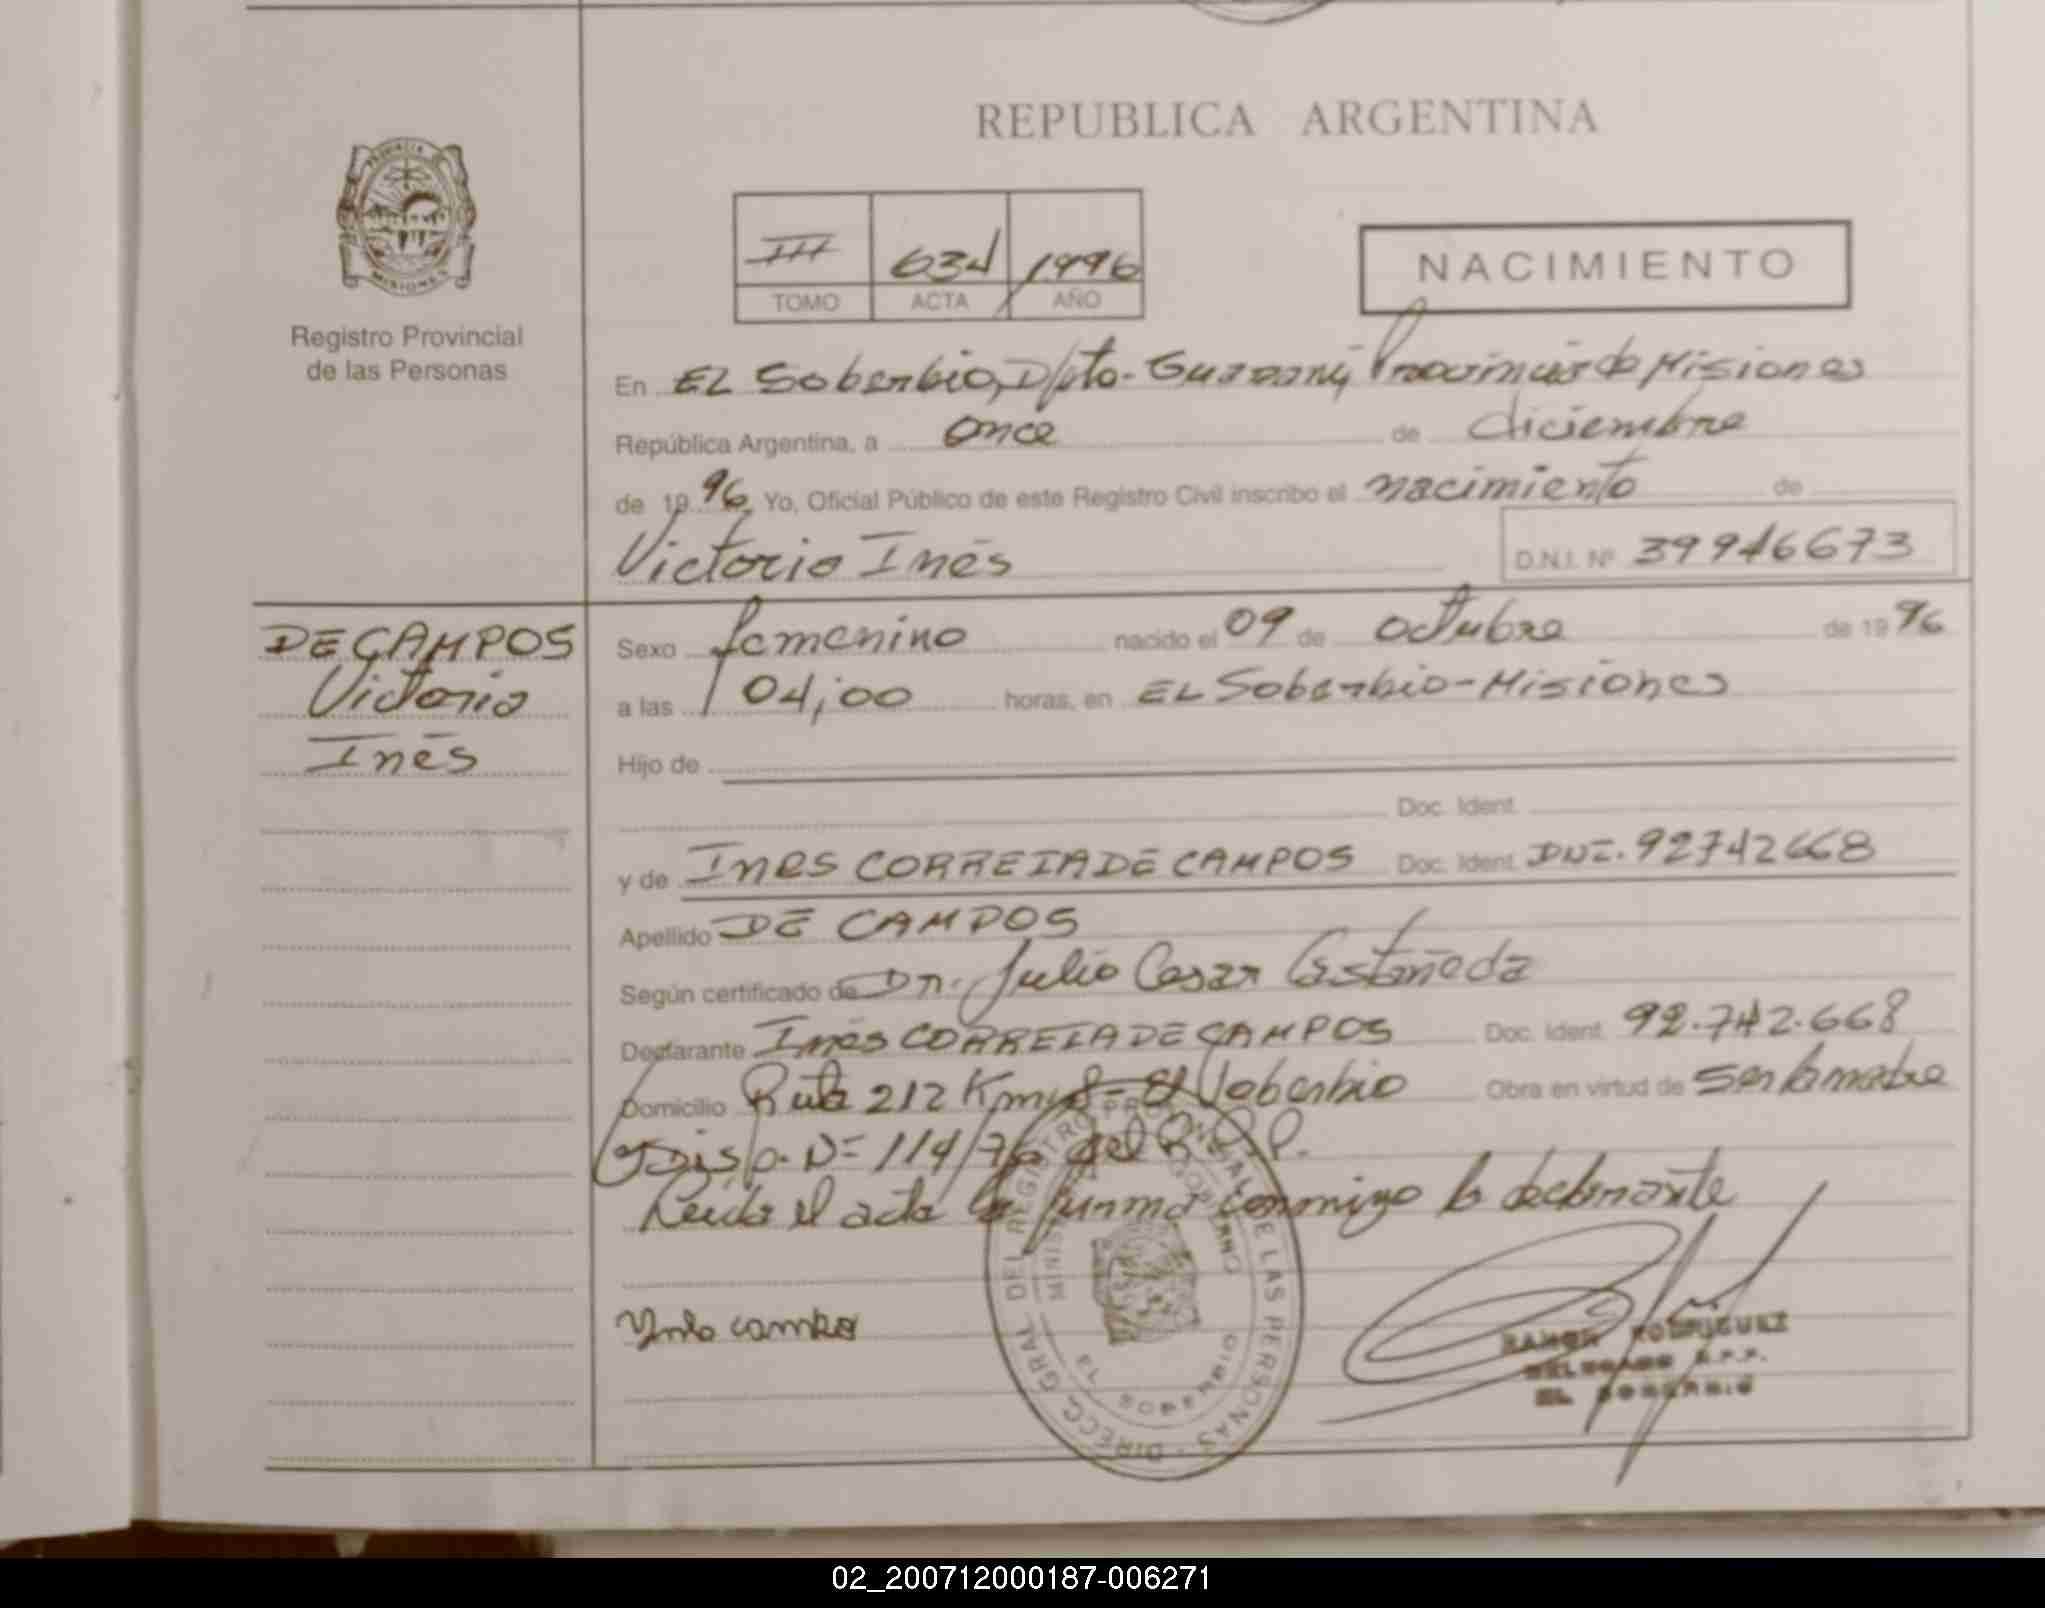 REPUBLICA ARGENTINA
PROVINCIA DE
MISIONES
Registro Provincial
de las Personas
III 634 1996
TOMO ACTA AÑO
NACIMIENTO
En EL Soberbio, Dpto- Guaraní Provincia de Misiones
República Argentina, a once de diciembre
de 1996 Yo, Oficial Público de este Registro Civil inscribo el nacimiento de
Victoria Inés
D.N.I. Nº 39946673
DE CAMPOS
Victoria
Inés
Sexo femenino nacido el 09 de octubre de 1996
a las 04,00 horas, en EL Soberbio-Misiones
Hijo de
Doc. Ident.
y de INES CORREIA DE CAMPOS Doc. Ident. DNI. 92742668
Apellido DE CAMPOS
Según certificado de Dr. Julio Cesar Castañeda
Declarante Inés CORREIA DE CAMPOS Doc. Ident. 92.742.668
Domicilio Ruta 212 Km El Soberbio Obra en virtud de Ser la madre
y Disp. N= 114/76 del R.P.P.
Leída el acta la firma conmigo la declarante
DIRECC. GRAL. DEL REGISTRO PROVINCIAL DE LAS PERSONAS
GOBIERNO
SOBERBIO
RAMON RODRIGUEZ
DELEGADO R.P.P.
EL SOBERBIO
02_200712000187-006271